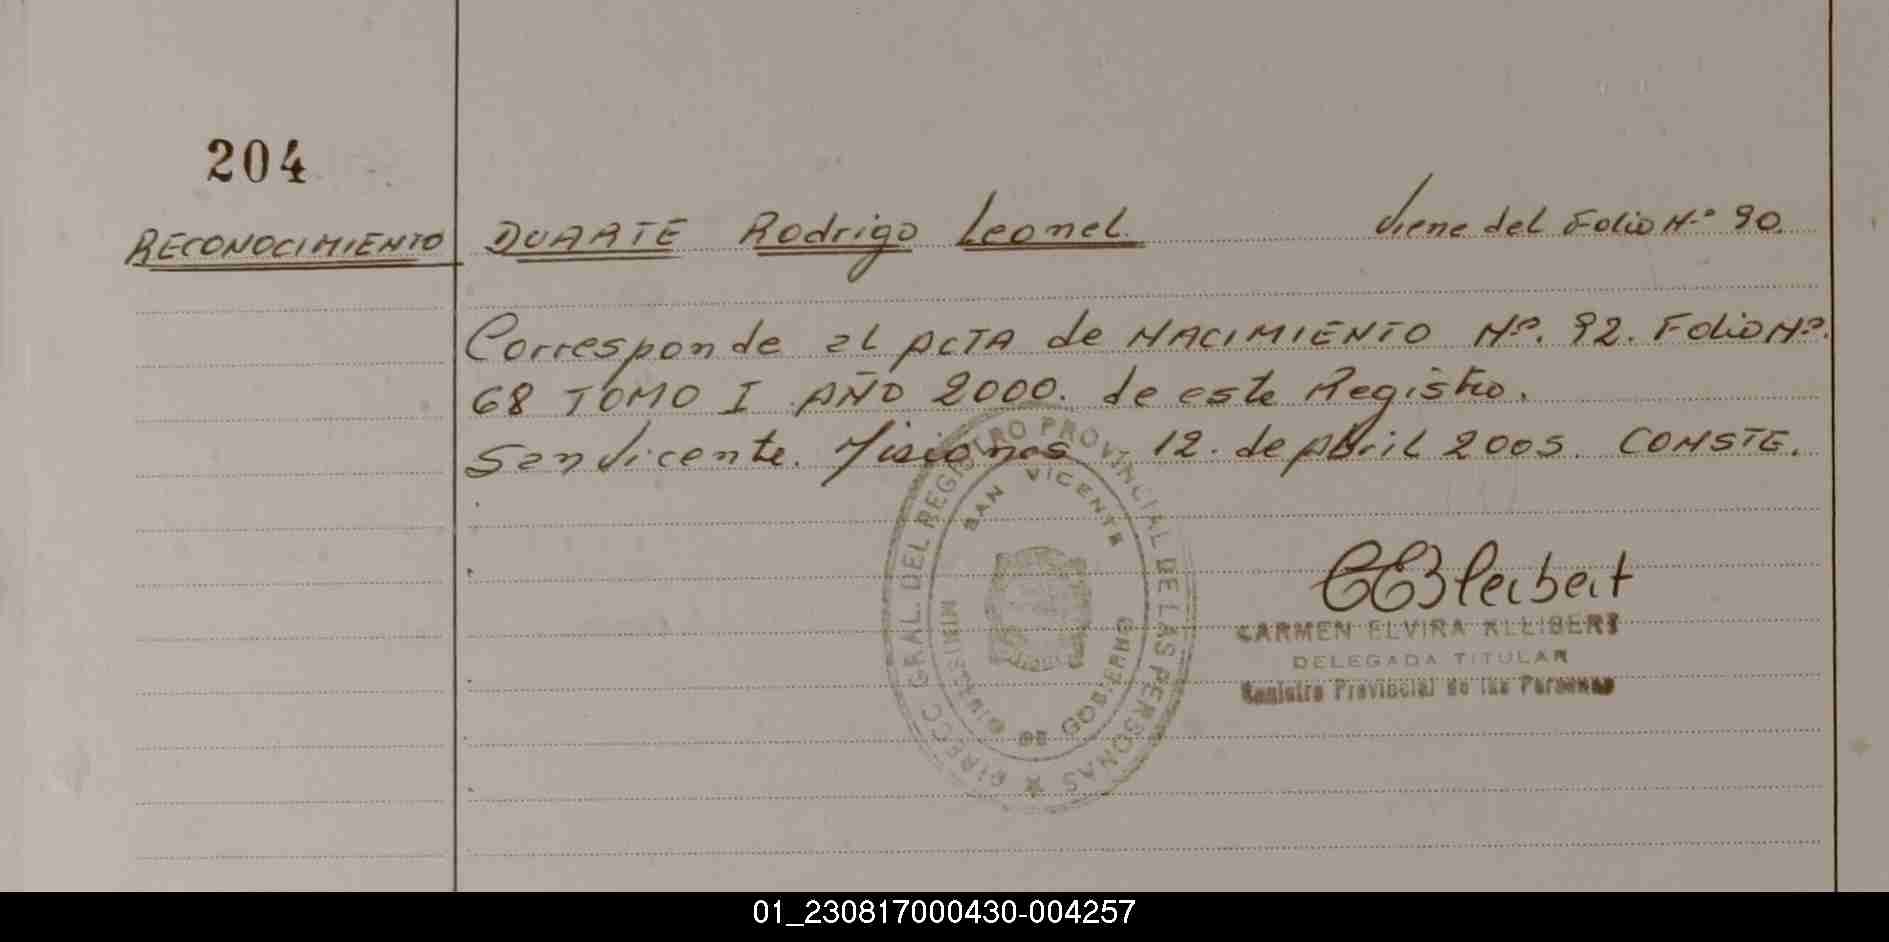 204
RECONOCIMIENTO DUARTE Rodrigo Leonel. Viene del Folio Nº 90.
Corresponde al ACTA de NACIMIENTO Nº. 92. Folio Nº.
68 TOMO I AÑO 2000. de este Registro.
San Vicente. Misiones 12. de Abril 2005. CONSTE.
DIRECC GRAL. DEL REGISTRO PROVINCIAL DE LAS PERSONAS
SAN VICENTE
MINISTERIO DE GOBIERNO
CARMEN ELVIRA ALLIBERT
DELEGADA TITULAR
Registro Provincial de las Personas
01_230817000430-004257